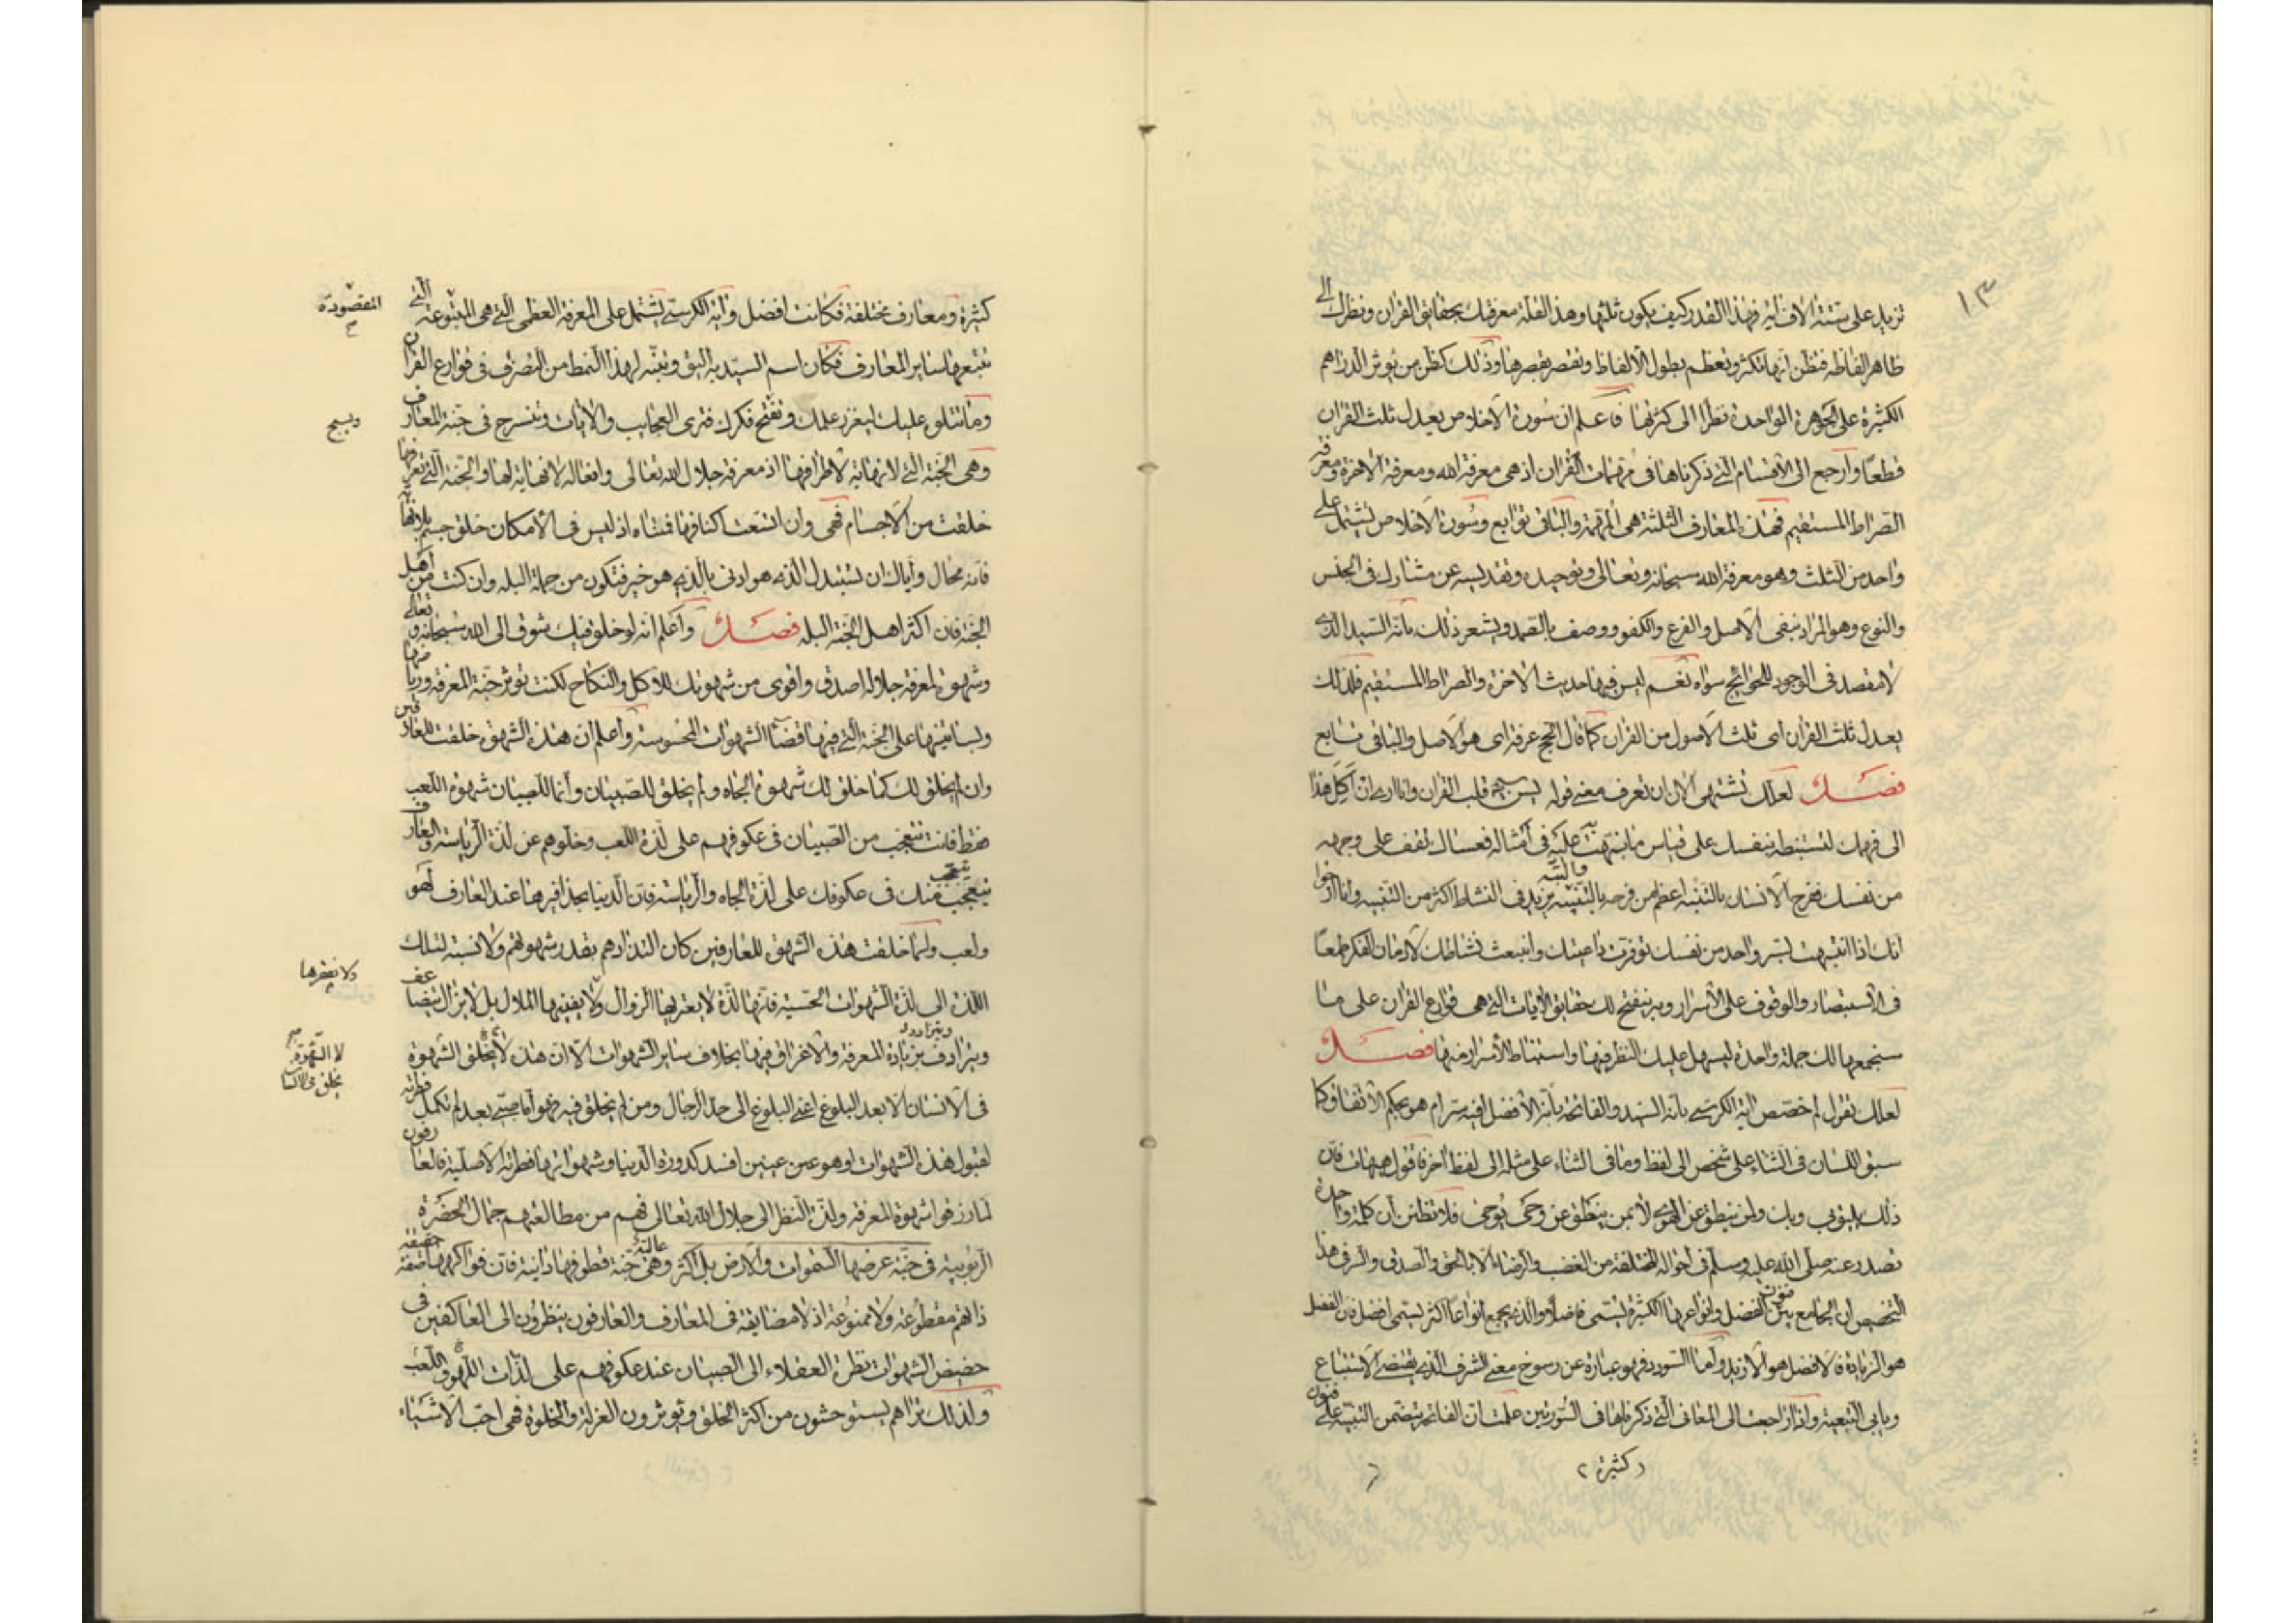 ١٣
تزيد على ستة الاف اية فهذا القدر كيف يكون ثلثها وهذا القلة معرفتك بحقايق القران ونظرك الى
ظاهر الفاظه فتظن انها تكثر وتعظم بطول الالفاظ وتقصر بقصرها وذلك كظن من يؤثر الدراهم
الكثيرة على الجوهرة الواحدة نظرا الى كثرتها فاعلم ان سورة الاخلاص يعدل ثلث القران
قطعا وارجع الى الاقسام التي ذكرناها في مهمات القران اذ هي معرفة الله ومعرفة الاخرة ومعرفة
الصراط المستقيم فهذه المعارف الثلثة هي المهمة والباقي توابع وسورة الاخلاص يشتمل على
واحد من الثلث وهو معرفة الله سبحانه وتعالى وتوحيده وتقديسه عن مشارك في الجنس
والنوع وهو المراد بنفي الاصل والفرع والكفو ووصف بالصمد ويشعر ذلك بانه السيد الذي
لا مقصد في الوجود للحوائج سواه نعم ليس فيها حديث الاخرة والصراط المستقيم فلذلك
يعدل ثلث القران اى ثلث الاصول من القران كما قال الحج عرفة اى هو الاصل والباقي تابع
فصل لعلك تشتهى الان ان تعرف معنى قوله يس قلب القران وانا ارى ان اكل هذا
الى فهمك لتستنبطه بنفسك على قياس ما نبهت عليه في امثاله فعساك تقف على وجهه
من نفسك ففرح الانسان بالتنبه اعظم من فرحه بالتنبيه يزيد في النشاط اكثر من التنبيه وانا ارجوا
والتنبه
انك اذا انتبهت لسر واحد من نفسك توفرت داعيتك وانبعث نشاطك لادمان الفكر طمعا
في الاستبصار والوقوف على الاسرار وبه ينفتح لك حقايق الايات التي هي قوارع القران على ما
سنجمعها لك جملة واحدة ليسهل عليك النظر فيها واستنباط الاسرار منها فصل
لعلك تقول لم خصص اية الكرسي بانه السيد والفاتحة بانه الافضل افيه سر ام هو بحكم الاتفاق كما
سبق اللسان في الثناء على شخص الى لفظ وما في الثناء على مثله الى لفظ اخر فاقول هيهات فان
ذلك يليق بي وبك ولمن ينطق عن الهوى لا بمن ينطق عن وحى يوحى فلا تظنن ان كلمة واحدة
تصدر عنه صلى الله عليه وسلم في احواله المختلفة من الغضب والرضاء الا بالحق والصدق والسر في هذا
التخصيص ان الجامع بين فنون الفضل وانواعها الكثيرة يسمى فاضلا والذي يجمع انواعا اكثر يسمى افضل فان الفضل
هو الزيادة فالافضل هو الازيد واما السودد فهو عبارة عن رسوخ معنى الشرف الذي يقتضى الاستتباع
ويابى التبعية واذا راجعت الى المعانى التي ذكرناها في السورتين علمت ان الفاتحة يتضمن التنبيه على فنون
كثيرة
كثيرة ومعارف مختلفة فكانت افضل واية الكرسي يشتمل على المعرفة العظمى التي هي المتبوعة التي
المقصودة
تتبعها ساير المعارف فكان اسم السيد به اليق وتنبه لهذا النمط من التصرف في قوارع القران
وما نتلوه عليك ليغزر علمك وتفتح فكرك فترى العجايب والايات وتنسرح في جنة المعارف
وهي الجنة التي لا نهاية لاطرافها اذ معرفة جلال الله تعالى وافعاله لا نهاية لها والجنة التي تعرفها
خلقت من الاجسام فهي وان اتسعت اكنافها فمتناه اذ ليس في الامكان خلق جسم بلا نهاية
فانه محال واياك ان تستبدل الذي هو ادنى بالذي هو خير فتكون من جملة البله وان كنت من اهل
الجنة فان اكثر اهل الجنة البله فصل واعلم انه لو خلق فيك شوق الى الله سبحانه وتعالى
وشهوة لمعرفة جلاله اصدق واقوى من شهوتك للاكل والنكاح لكنت تؤثر جنة المعرفة ورياضها
وبساتينها على الجنة التي فيها قضاء الشهوات المحسوسة واعلم ان هذه الشهوة خلقت للعارفين
وان لم يخلق لك كما خلق لك شهوة الجاه ولم يخلق للصبيان وانما للصبيان شهوة اللعب
فقط فانت تتعجب من الصبيان في عكوفهم على لذة اللعب وخلوهم عن لذة الرياسة والعارف
يتعجب منك في عكوفك على لذة الجاه والرياسة فان الدنيا بحذافيرها عند العارف لهو
ولعب ولما خلقت هذه الشهوة للعارفين كان التذاذهم بقدر شهوتهم ولا نسبة لتلك
اللذة الى لذة الشهوات الحسية فانها لذة لا يعتريها الزوال ولا يفنيها الملال بل لا يزال يتضاعف
ويترادف بزيادة المعرفة والاغراق فيها بخلاف ساير الشهوات الا ان هذه لا يخلق الشهوة
في الانسان الا بعد البلوغ اعنى البلوغ الى حد الرجال ومن لم يخلق فيه فهو اما صبي بعد لم تكمل فطرته
لقبول هذه الشهوات او هو عنين افسد كدورة الدنيا وشهواتها فطرته الاصلية فالعارفون
لما رزقوا شهوة المعرفة ولذة النظر الى جلال الله تعالى فهم من مطالعتهم جمال الحضرة
الربوبية في جنة عرضها السموات والارض بل اكثر وهي جنة عالية قطوفها دانية فان فواكهها صفة
ذاتهم مقطوعة ولا ممنوعة اذ لا مضايقة في المعارف والعارفون ينظرون الى العاكفين في
حضيض الشهوات نظرة العقلاء الى الصبيان عند عكوفهم على لذات اللهو واللعب
ولذلك تراهم يستوحشون من اكثر الخلق ويؤثرون العزلة والخلوة فهي احب الاشياء